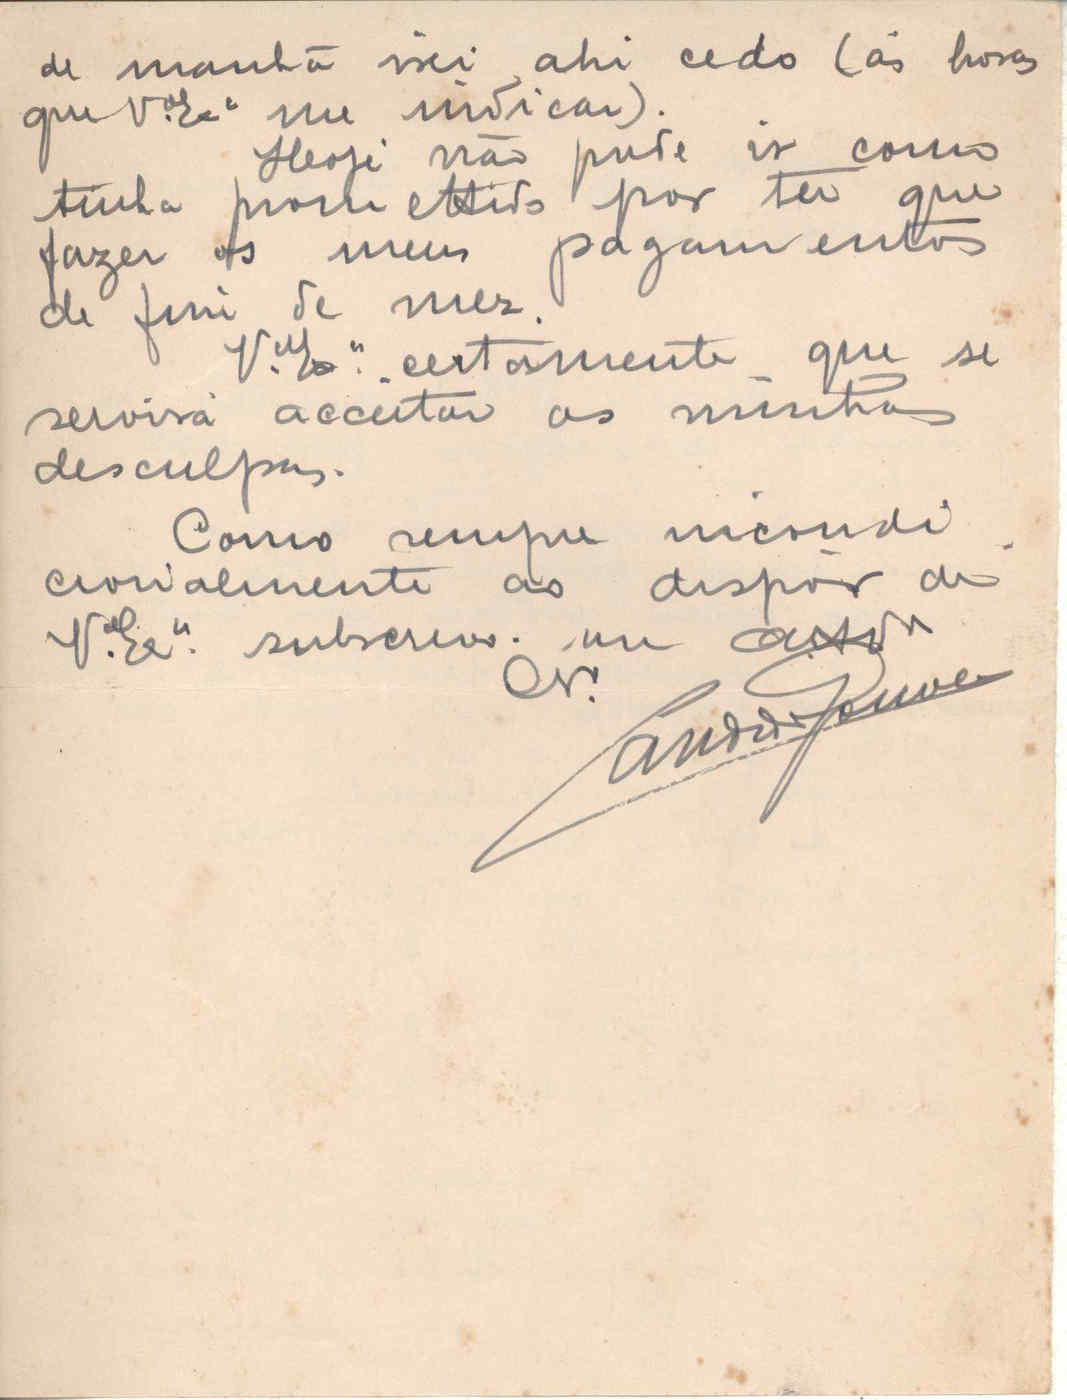 de manhã irei ahi cedo (ás horas
que V.ª Ex.ª me indicar).
Hoje não pude ir como
tinha promettido por ter que
fazer os meus pagamentos
de fim de mez.
V.ª Ex.ª certamente que se
servirá acceitar as minhas
desculpas.
Como sempre incondi
cionalmente ao dispôr de
V.ª Ex.ª subscrevo. me